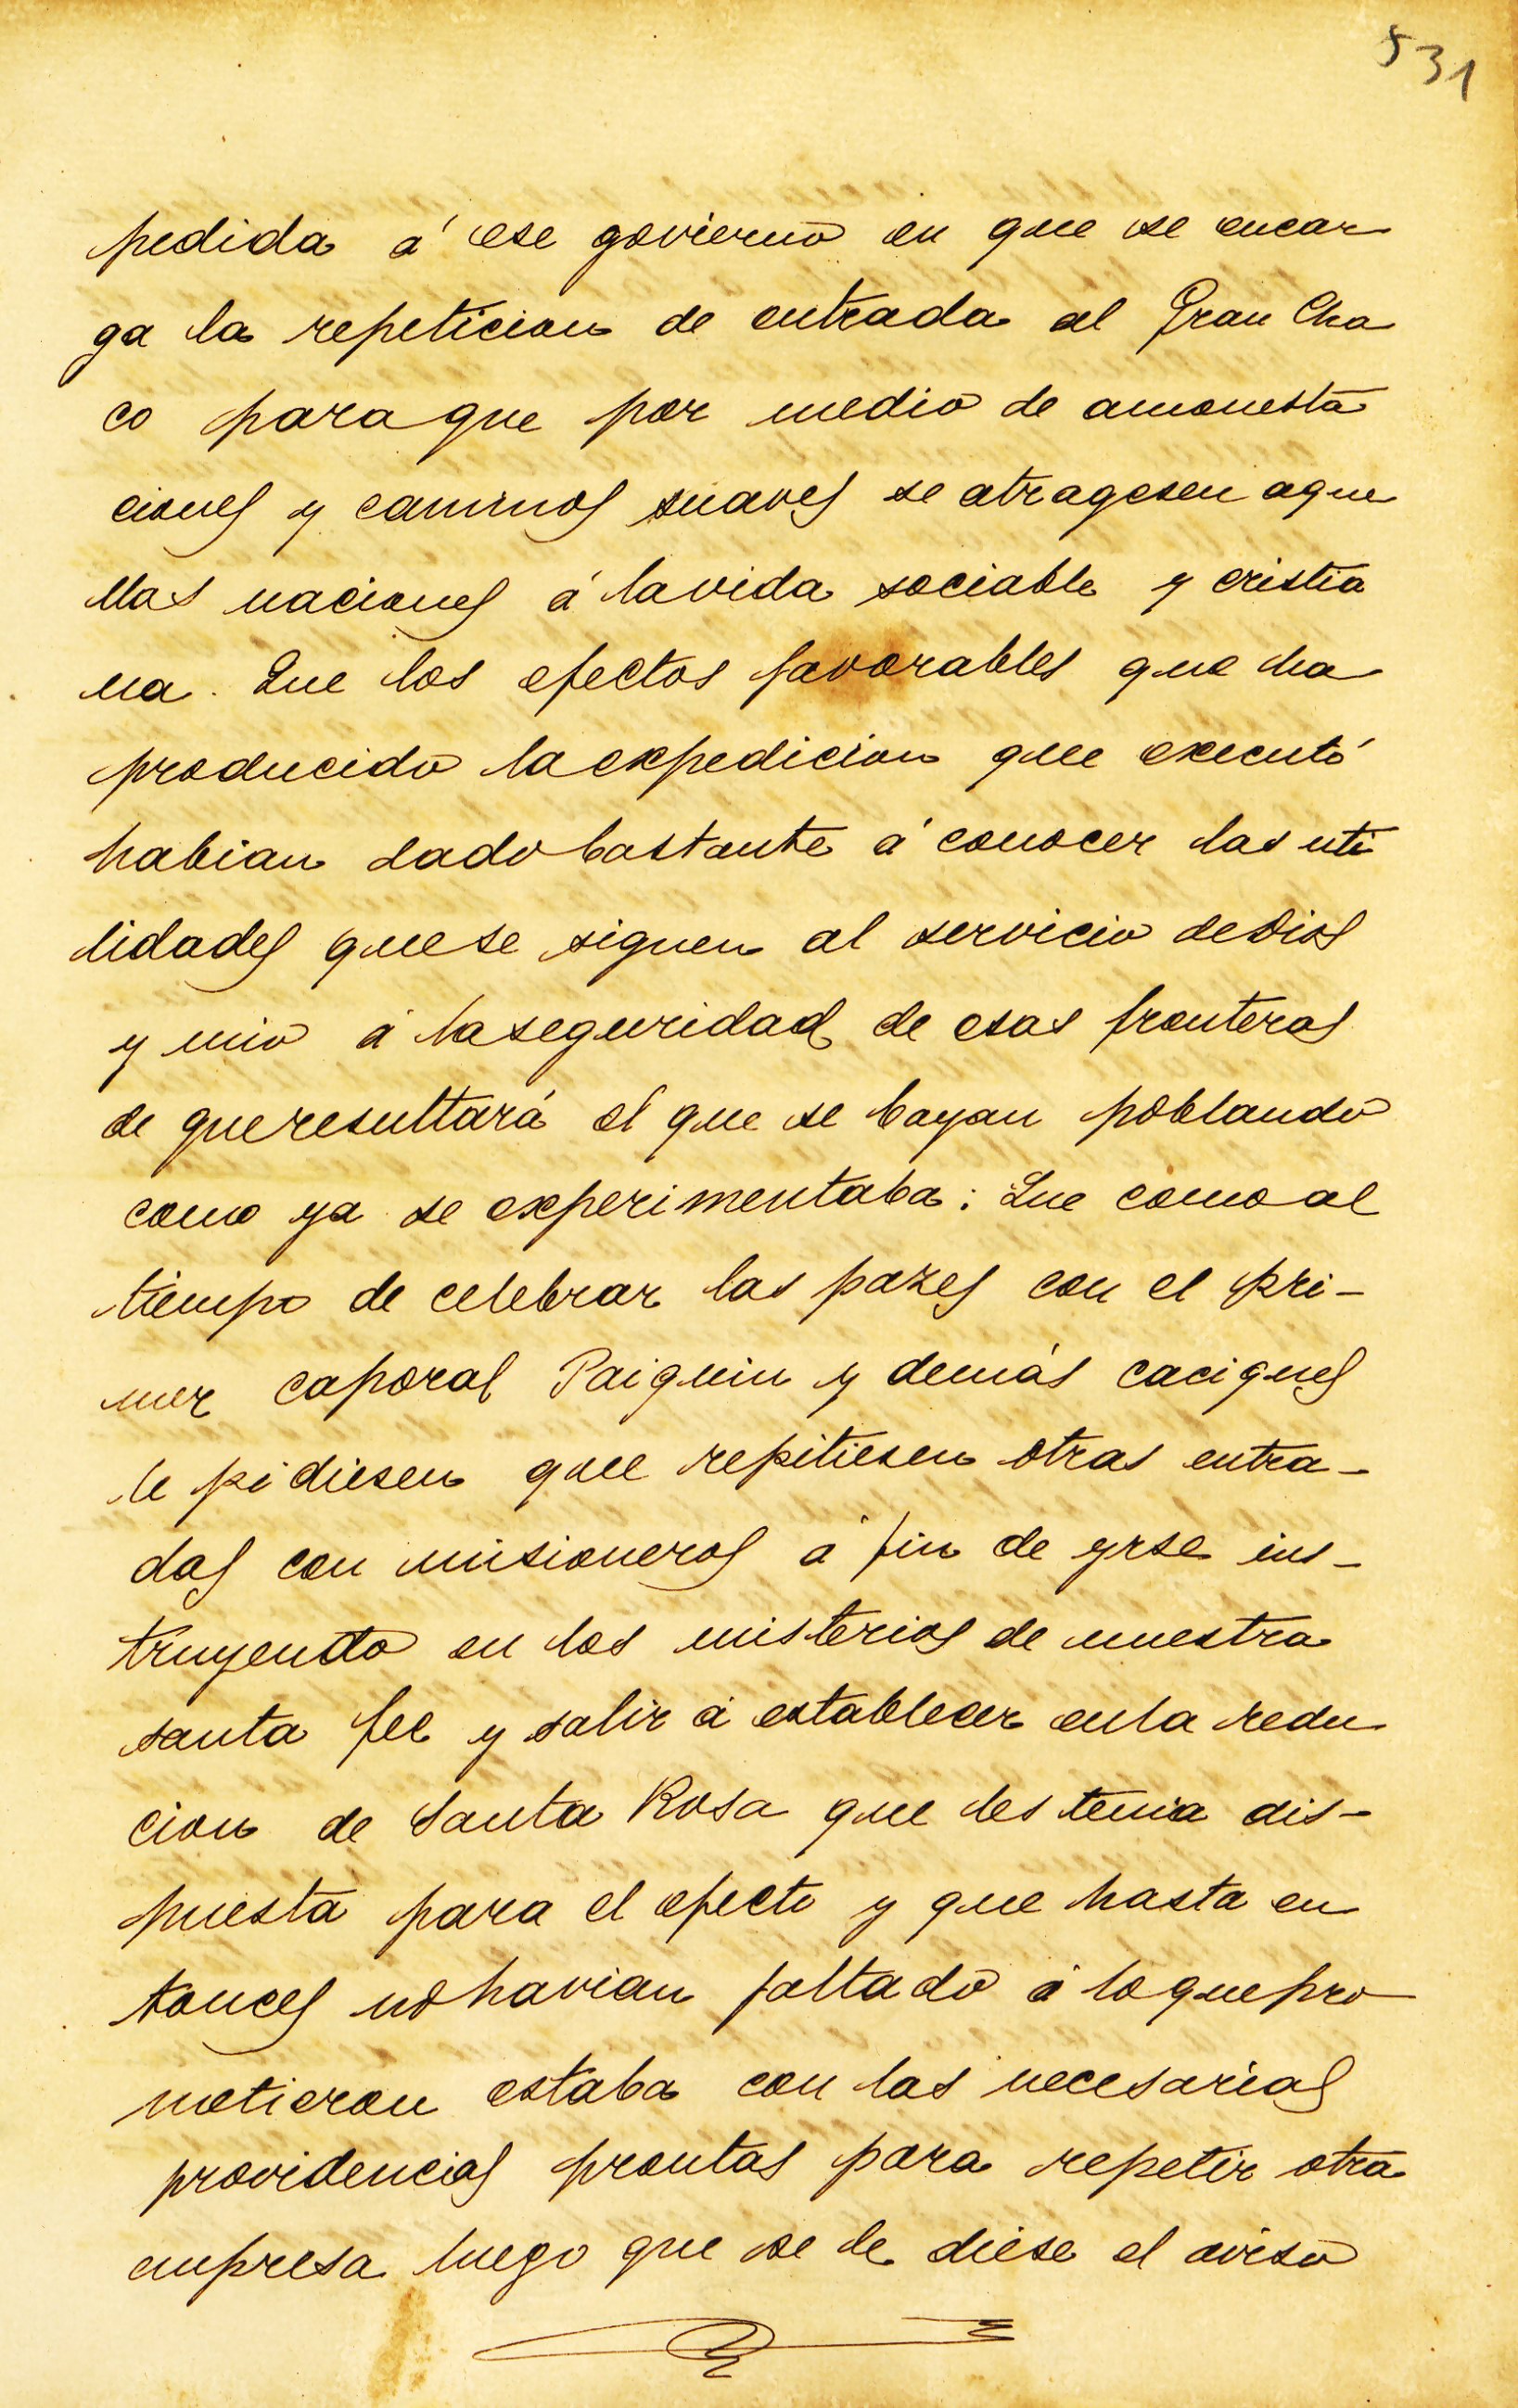 531
pedida á ese govierno en que se encar
ga la repeticion de entrada al Gran Cha
co para que por medio de amonesta
ciones y caminos suaves se atragesen aque
llas naciones á la vida sociable y cristia
na. Que los efectos favorables que ha
producido la expedicion que executó
habian dado bastante á conocer las uti
lidades que se siguen al servicio de Dios
y mio á la seguridad de esas fronteras
de que resultará el que se bayan poblando
como ya se experimentaba: Que como al
tiempo de celebrar las pazes con el pri-
mer caporal Paiquin y demás caciques
le pidiesen que repitiesen otras entra-
das con misioneros á fin de yrse ins-
truyendo en los misterios de nuestra
santa fee y salir á establecer en la redu
cion de Santa Rosa que les tenia dis-
puesta para el efecto y que hasta en
tonces no havian faltado á lo que pro
metieron estaba con las necesarias
providencias prontas para repetir otra
empresa luego que se le diese el aviso